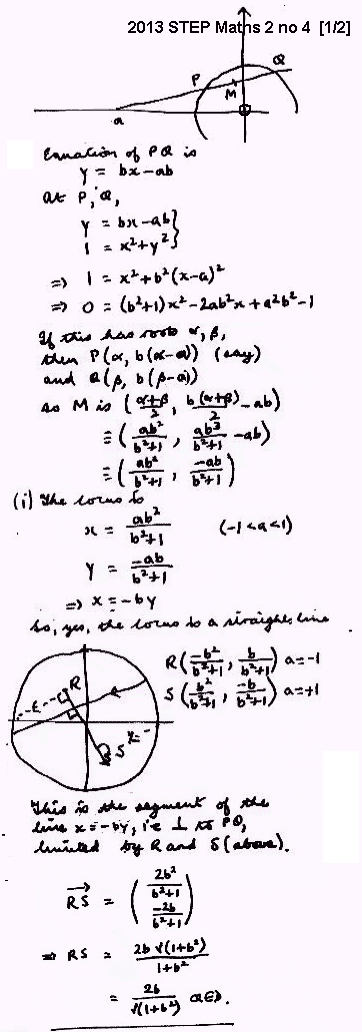 2013 STEP Maths 2 no 4 [1/2]
P
Q
M
a
0
Equation of PQ is
y = bx - ab
At P, Q,
y = bx - ab }
1 = x² + y² }
⇒ 1 = x² + b²(x-a)²
⇒ 0 = (b²+1)x² - 2ab²x + a²b² - 1
If this has roots α, β,
then P(α, b(α-a)) (say)
and Q(β, b(β-a))
so M is ( (α+β)/2 , b(α+β)/2 - ab )
≡ ( ab²/(b²+1) , ab³/(b²+1) - ab )
≡ ( ab²/(b²+1) , -ab/(b²+1) )
(i) The locus is
x = ab²/(b²+1) (-1 < a < 1)
y = -ab/(b²+1)
⇒ x = -by
So, yes, the locus is a straight line
R
S
R( -b²/(b²+1) , b/(b²+1) ) a=-1
S( b²/(b²+1) , -b/(b²+1) ) a=+1
This is the segment of the
line x = -by, i.e ⊥ to PQ,
limited by R and S (above).
RS = ( 2b²/(b²+1) , -2b/(b²+1) )
⇒ RS = 2b√(1+b²)/(1+b²)
= 2b/√(1+b²) QED.